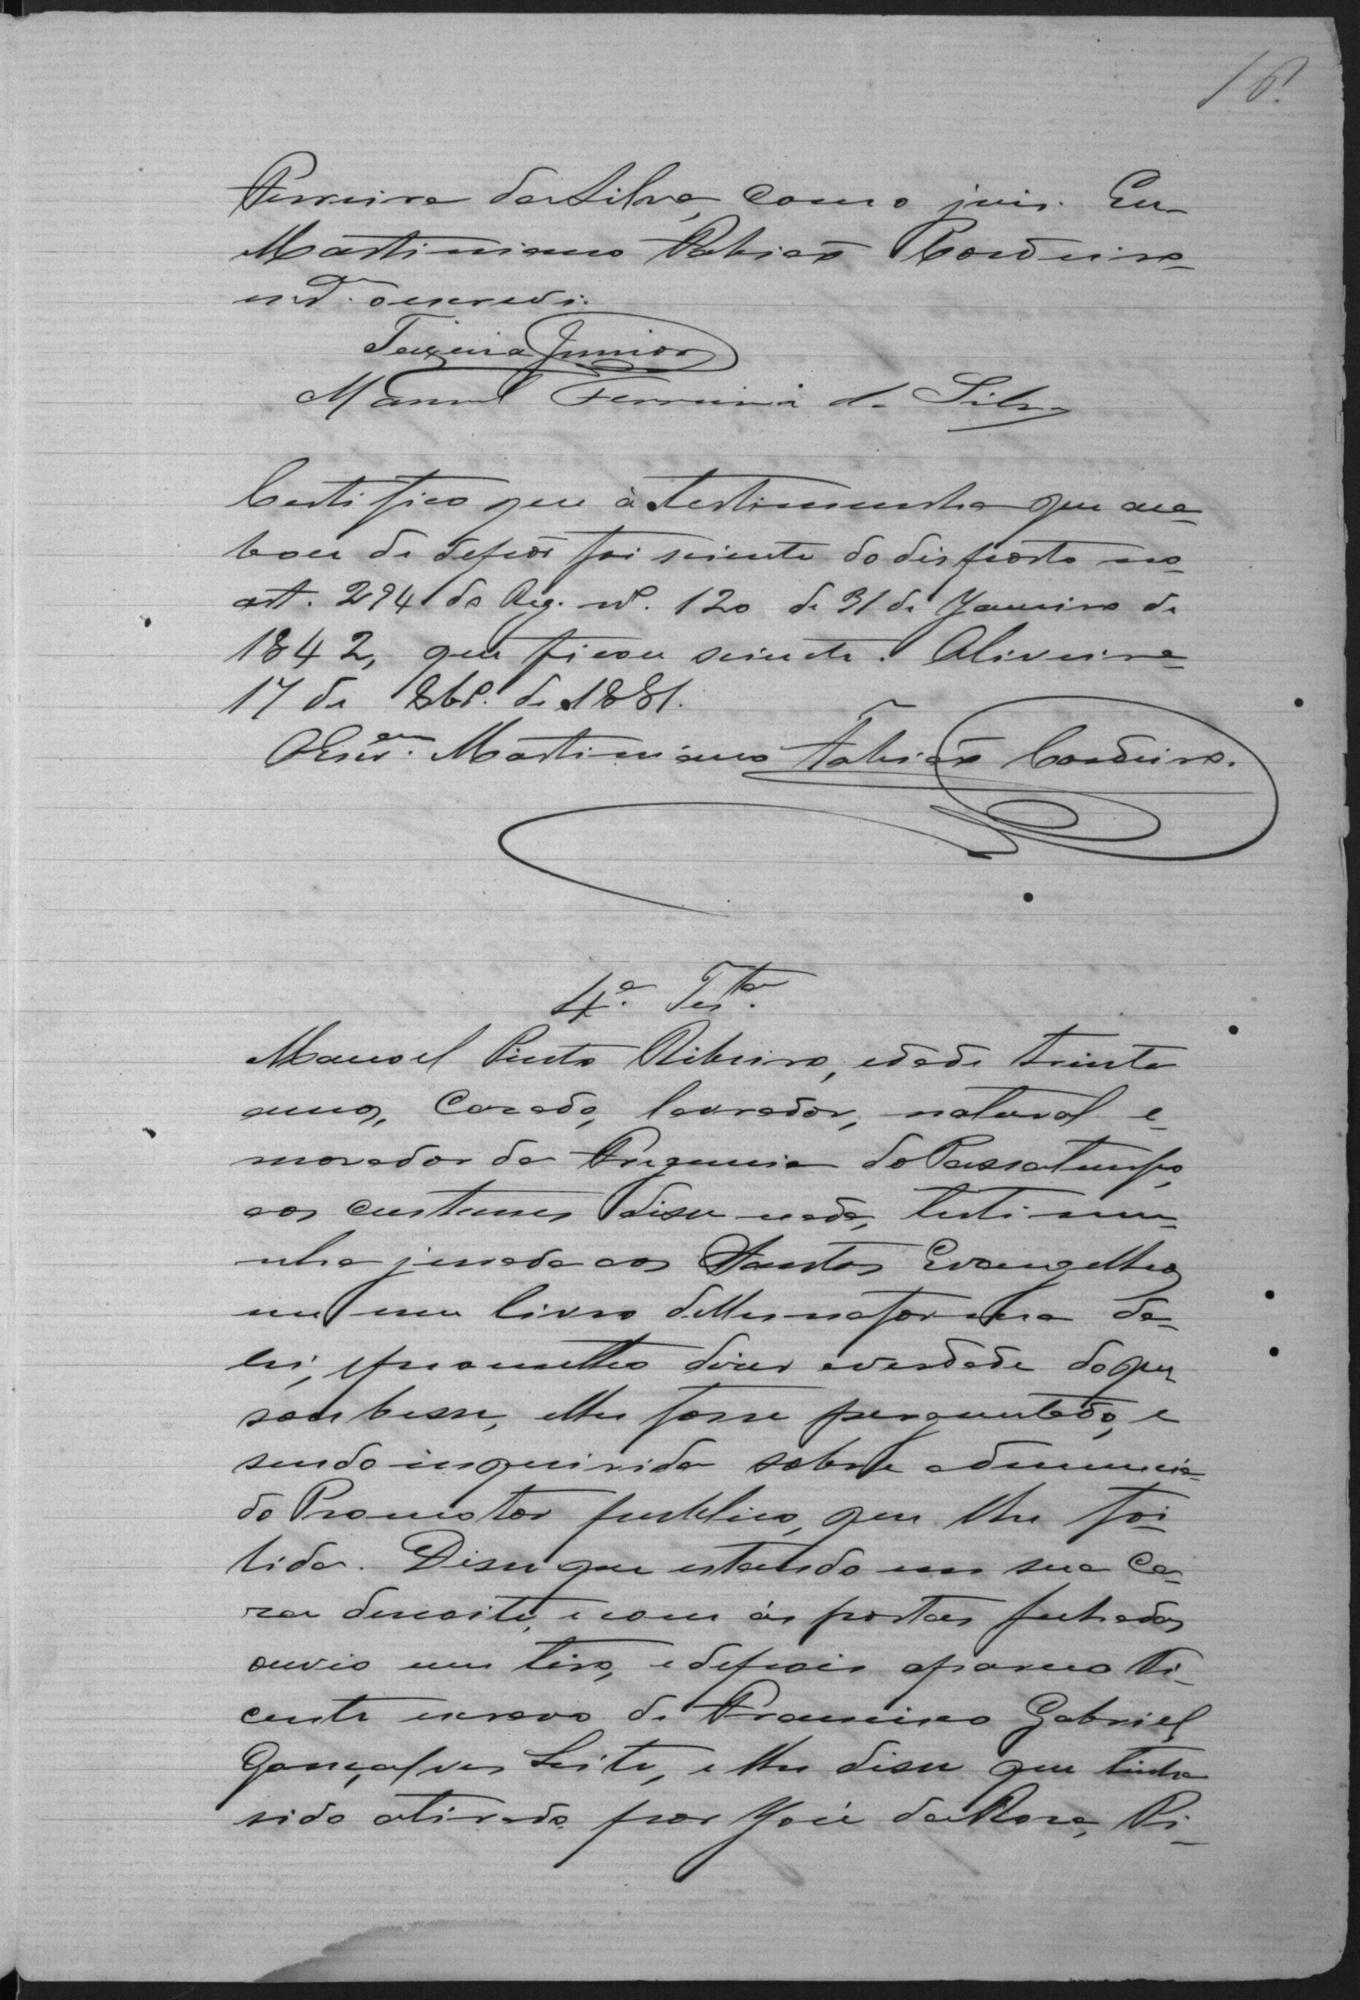 16.
Ferreira da Silva, como juis. Eu
Martiniano Fabião Cordeiro
escrevi.
Teixeira Junior
Manoel Ferreira da Silva
Certifico que à testimunha que aca-
bou de depôr foi sciente do disposto no
art. 294 do Reg. nº. 120 de 31 de Janeiro de
1842, que ficou sciente. Oliveira
17 de 8bº. de 1881.
O Escrᵃᵐ. Martiniano Fabião Cordeiro.
4ª. Tesᵗᵃ.
Manoel Pinto Ribeiro, edade trinta
annos, casado, lavrador, natural e
morador da Freguesia do Passatempo,
aos custumes disse nada, testimu-
nha jurada aos Santos Evangelhos
em um livro delles na forma da
lei, e prometteo dizer a verdade do que
soubesse, e lhe fosse perguntado, e
sendo inquirida sobre a denuncia
do Promotor publico, que lhe foi
lida. Disse que estando em sua ca-
za denoite, e com as portas fechadas
ouvio um tiro, e depois apareceo Vi-
cente escravo de Francisco Gabriel
Gonçalves Leite, e lhe disse que tinha
sido atirado por José da Roza, Ri-